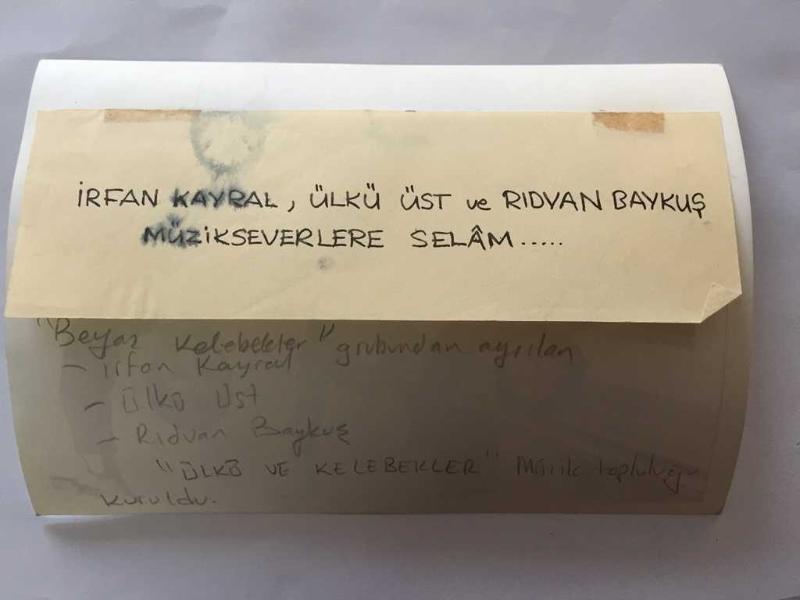 İRFAN KAYRAL, ÜLKÜ ÜST ve RIDVAN BAYKUŞ
MÜZİKSEVERLERE SELÂM.....
"Beyaz Kelebekler" grubundan ayrılan
- İrfan Kayral
- Ülkü Üst
- Rıdvan Baykuş
"ÜLKÜ VE KELEBEKLER" Müzik topluluğu
kuruldu.